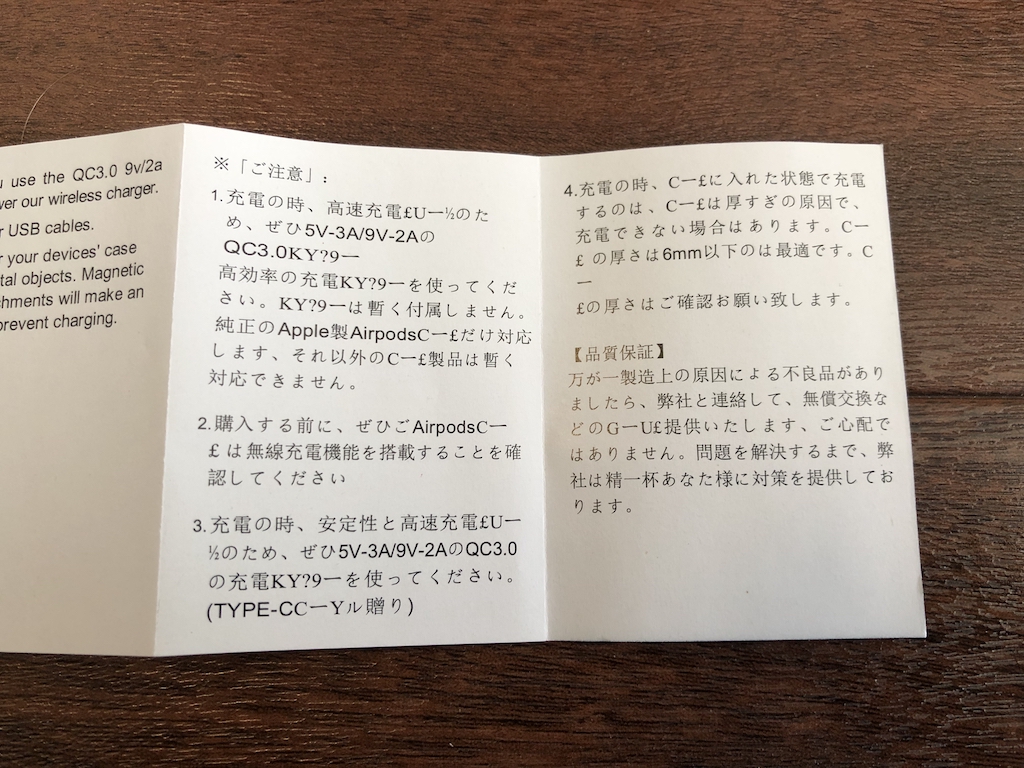 u use the QC3.0 9v/2a
wer our wireless charger.
r USB cables.
r your devices' case
tal objects. Magnetic
chments will make an
prevent charging.
※「ご注意」:
1.充電の時、高速充電£Uー½のた
め、ぜひ5V-3A/9V-2Aの
QC3.0KY?9ー
高効率の充電KY?9ーを使ってくだ
さい。KY?9ーは暫く付属しません。
純正のApple製AirpodsCー£だけ対応
します、それ以外のCー£製品は暫く
対応できません。
2.購入する前に、ぜひごAirpodsCー
£は無線充電機能を搭載することを確
認してください
3.充電の時、安定性と高速充電£Uー
½のため、ぜひ5V-3A/9V-2AのQC3.0
の充電KY?9ーを使ってください。
(TYPE-CCーYル贈り)
4.充電の時、Cー£に入れた状態で充電
するのは、Cー£は厚すぎの原因で、
充電できない場合はあります。Cー
£の厚さは6mm以下のは最適です。C
ー
£の厚さはご確認お願い致します。
【品質保証】
万が一製造上の原因による不良品があり
ましたら、弊社と連絡して、無償交換な
どのGーU£提供いたします、ご心配で
はありません。問題を解決するまで、弊
社は精一杯あなた様に対策を提供してお
ります。